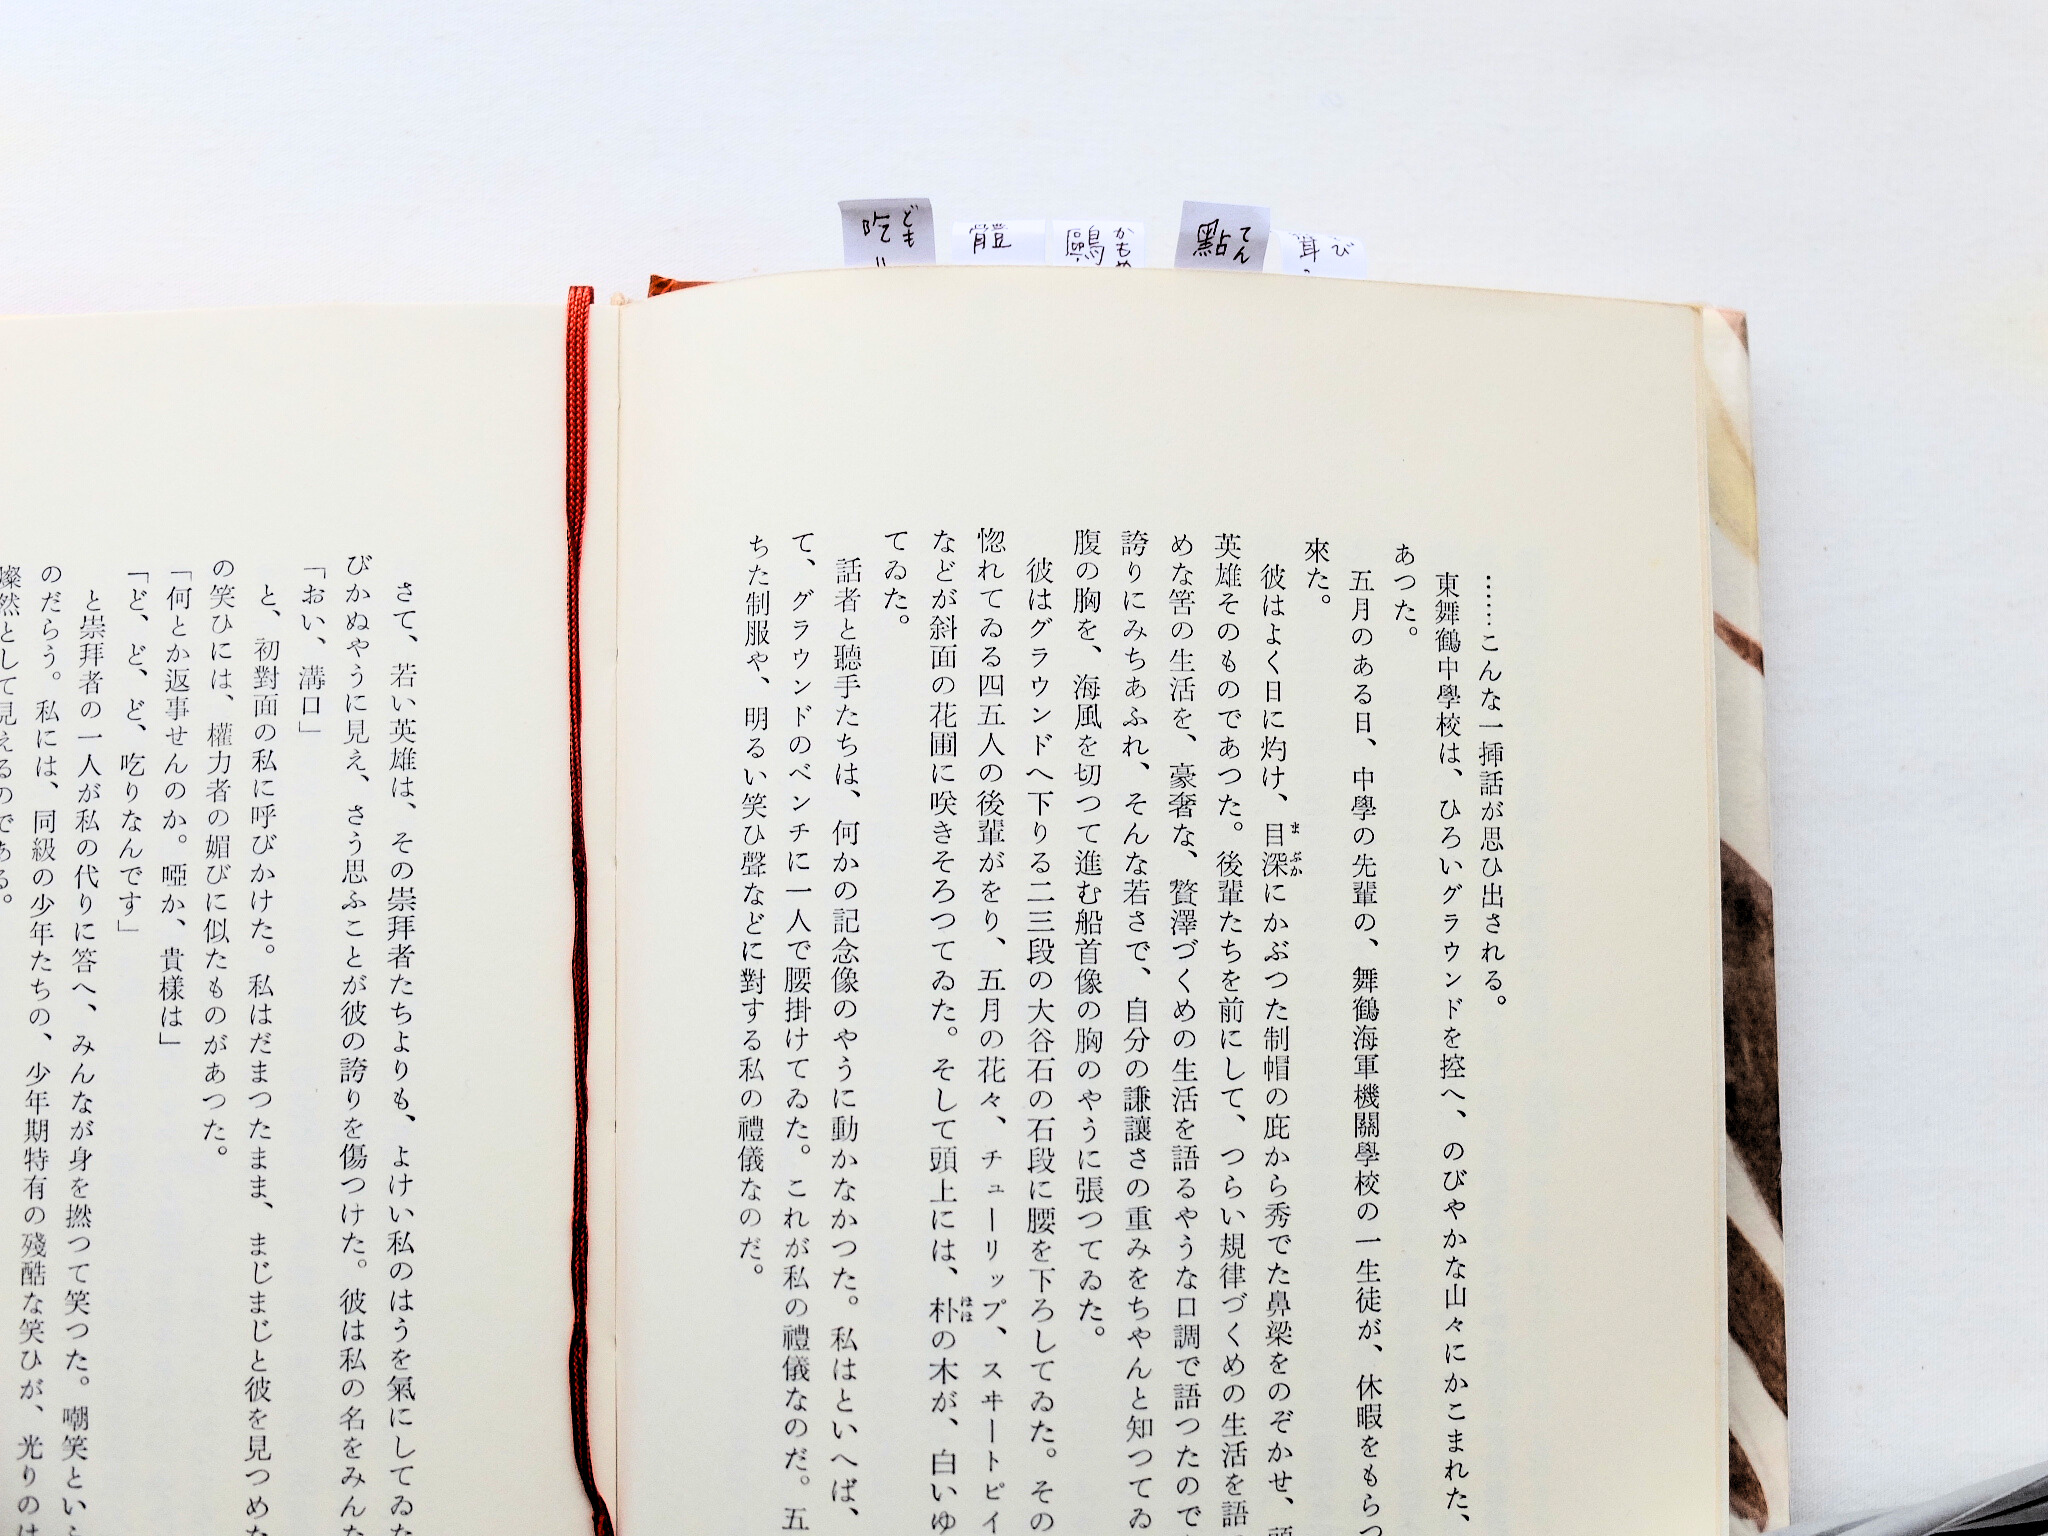 茸 び
點 てん
鷗 かもめ
體
吃 ども
……こんな一挿話が思ひ出される。
東舞鶴中學校は、ひろいグラウンドを控へ、のびやかな山々にかこまれた、
あつた。
五月のある日、中學の先輩の、舞鶴海軍機關學校の一生徒が、休暇をもらつ
來た。
彼はよく日に灼け、目深にかぶつた制帽の庇から秀でた鼻梁をのぞかせ、
まぶか
英雄そのものであつた。後輩たちを前にして、つらい規律づくめの生活を語
めな筈の生活を、豪奢な、贅澤づくめの生活を語るやうな口調で語つたので
誇りにみちあふれ、そんな若さで、自分の謙讓さの重みをちやんと知つてゐ
腹の胸を、海風を切つて進む船首像の胸のやうに張つてゐた。
彼はグラウンドへ下りる二三段の大谷石の石段に腰を下ろしてゐた。その
惚れてゐる四五人の後輩がをり、五月の花々、チューリップ、スヰートピイ
などが斜面の花圃に咲きそろつてゐた。そして頭上には、朴の木が、白いゆ
ほほ
てゐた。
話者と聽手たちは、何かの記念像のやうに動かなかつた。私はといへば、
て、グラウンドのベンチに一人で腰掛けてゐた。これが私の禮儀なのだ。五
ちた制服や、明るい笑ひ聲などに對する私の禮儀なのだ。
さて、若い英雄は、その崇拜者たちよりも、よけい私のはうを氣にしてゐた
びかぬやうに見え、さう思ふことが彼の誇りを傷つけた。彼は私の名をみんな
「おい、溝口」
と、初對面の私に呼びかけた。私はだまつたまま、まじまじと彼を見つめた
の笑ひには、權力者の媚びに似たものがあつた。
「何とか返事せんのか。啞か、貴樣は」
「ど、ど、ど、吃りなんです」
と崇拜者の一人が私の代りに答へ、みんなが身を撚つて笑つた。嘲笑といふ
のだらう。私には、同級の少年たちの、少年期特有の殘酷な笑ひが、光りのは
燦然として見えるのである。